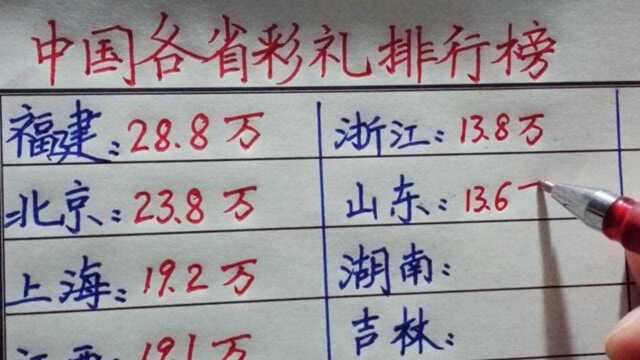 中国各省彩礼排行榜
福建:28.8万
浙江:13.8万
北京:23.8万
山东:13.6
上海:19.2万
湖南:
江西:19.1万
吉林: